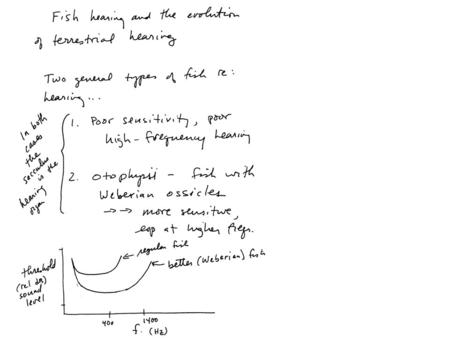 Fish hearing and the evolution
of terrestrial hearing
Two general types of fish re:
hearing...
In both
cases
the
sacculus
is the
hearing
organ
1. Poor sensitivity, poor
high-frequency hearing
2. Otophysii - fish with
Weberian ossicles
→→ more sensitive,
esp at higher freqs.
threshold
(rel dB)
sound
level
regular fish
better (Weberian) fish
400
1400
f. (Hz)